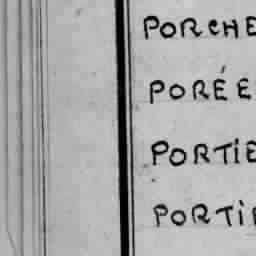 PORCHE
PORÉE
PORTiE
PORTi